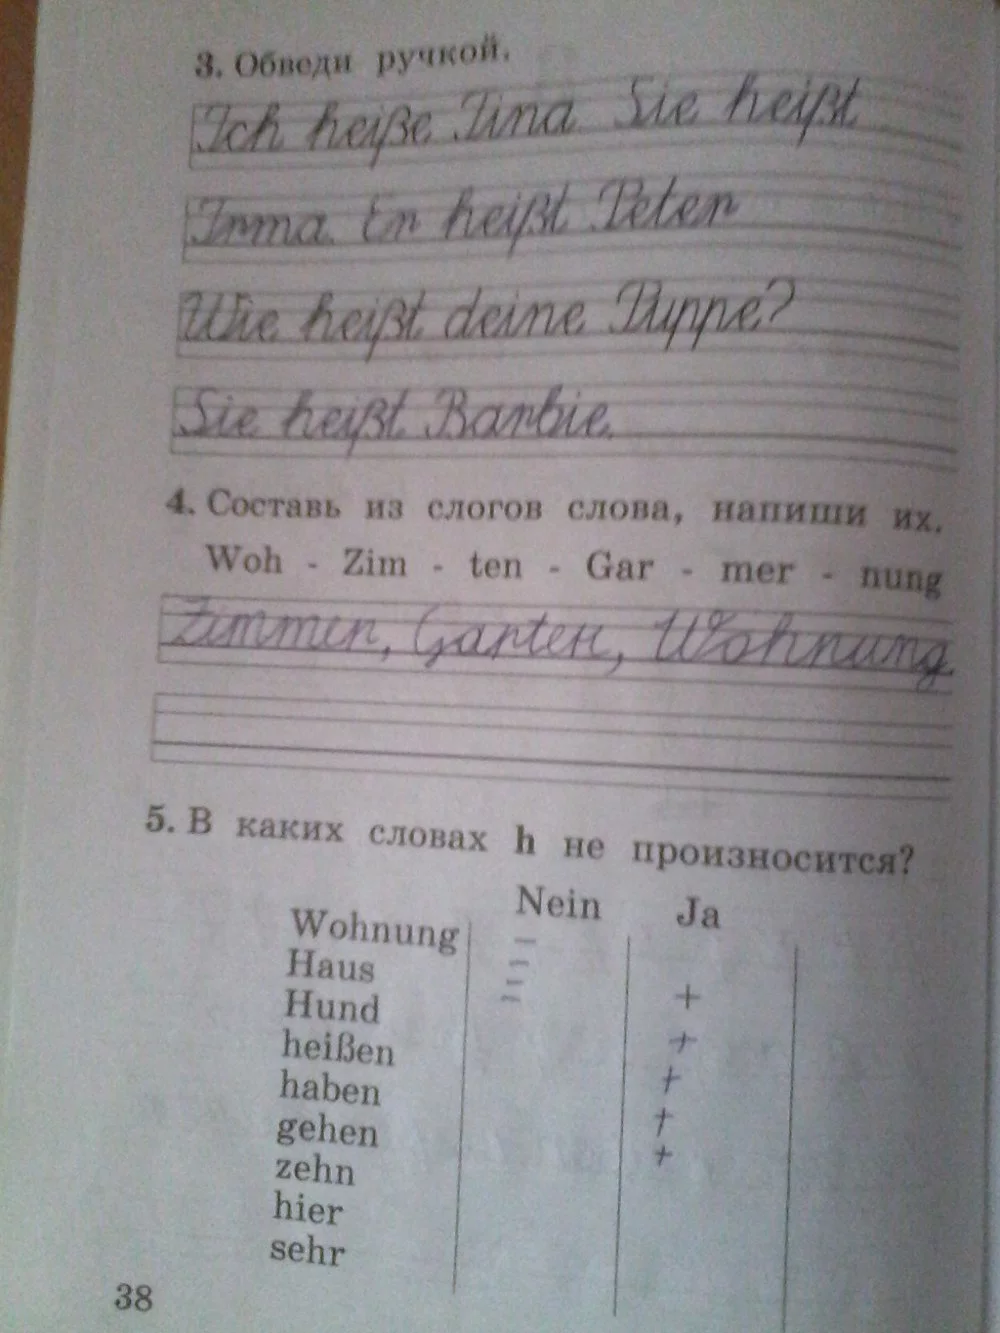 3. Обведи ручкой.
Ich heiße Tina. Sie heißt
Irma. Er heißt Peter
Wie heißt deine Puppe?
Sie heißt Barbie.
4. Составь из слогов слова, напиши их.
Woh - Zim - ten - Gar - mer - nung
Zimmer, Garten, Wohnung
5. В каких словах h не произносится?
Nein Ja
Wohnung –
Haus –
Hund – +
heißen – +
haben +
gehen +
zehn +
hier
sehr
38